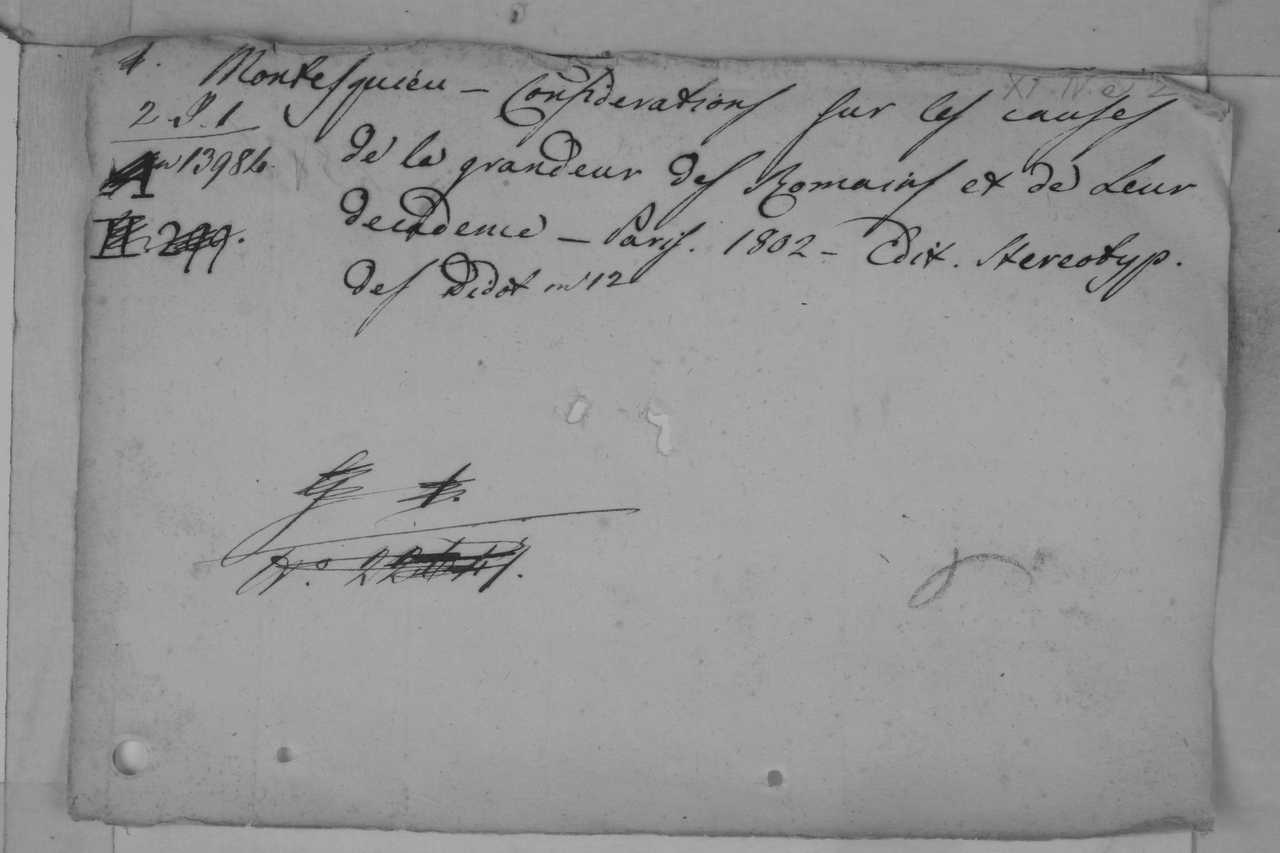 Montesquieu — Considerations sur les causes
de la grandeur des Romains et de Leur
decadence — Paris. 1802 — Edit. Stereotyp.
des Didot in 12
2. P. 1
13984.
II. 299.
N°